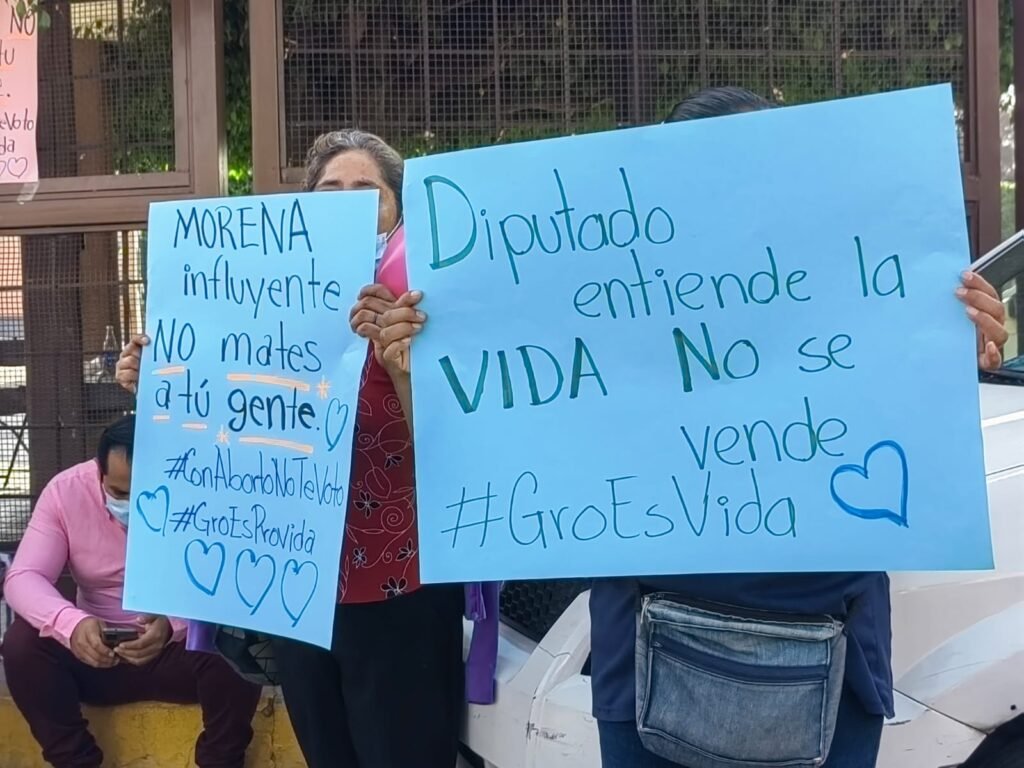 NO
MORENA
influyente
NO mates
a tú gente.
#ConAbortoNoTeVoto
#GroEsProvida
Diputado
entiende la
VIDA No se
vende
#GroEsVida